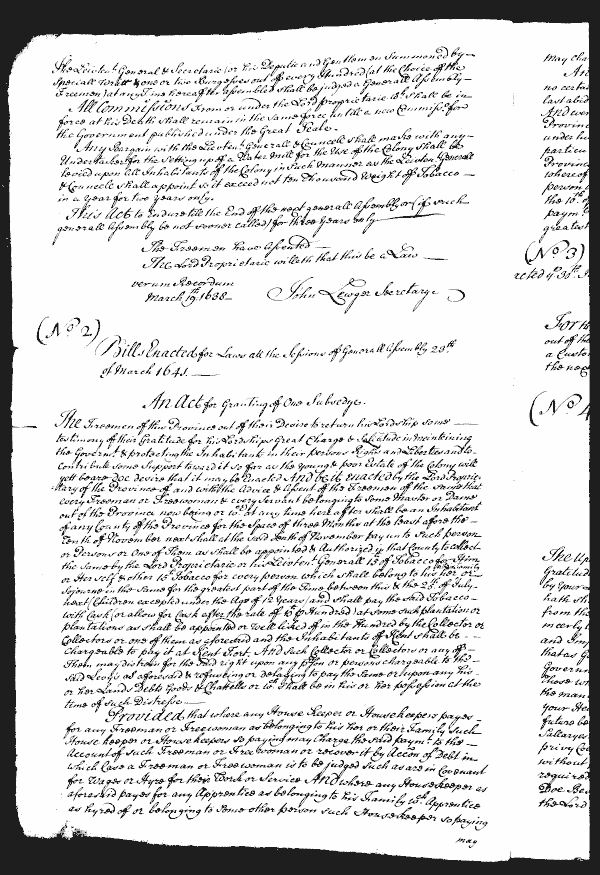 The Lieuten.t Generall & Secretarie (or his Deputie and Gentlemen Summoned by
Speciall Writt & one or two Burgesses out of every Hundred (at the Choice of the
Freemen) at any Time hereafter Assembled Shall be judged a Generall Assembly
All Commissions from or under the Lord Proprietarie w.ch Shall be in
force at his Death Shall remain in the Same force untill a new Commission for
the Government published under the Great Seale.
Any Bargain w.ch the Lieuten.t Generall & Councell Shall make with any
Undertaker for the Setting up of a Water Mill for the Use of the Colony Shall be
levied upon all Inhabitants of the Colony in Such Manner as the Lieuten.t Generall
& Councell Shall appoint so it exceed not ten Thousand Weight of Tobacco
in a Year for two years only.
This Act to Endure till the End of the next generall Assembly or (if such
generall Assembly be not sooner called) for three Years only
The Freemen have Assented
The Lord Proprietarie willeth that this be a Law
verum Recordum
March 19.th 1638
John Lewger Secretarye
(No 2)
Bills Enacted for Laws att the Sessions of Generall Assembly 23.th
of March 1641.
An Act for Granting of One Subsedye.
The Freemen of this Province out of their Desire to return his Lordship some
testimony of their Gratitude for his Lordships Great Charge & Solicitude in maintaining
the Governm.t & protecting the Inhabitants in their persons Rights and Liberties and to
Contribute some Support towards it so far as the young & poor Estate of the Colony will
yett beare doe desire that it may be Enacted And be it enacted by the Lord Proprie
tary of this Province of and with the Advice & Assent of the Freemen of the Same that
every Freeman or Freewoman & every Servant belonging to Some Master or Dame
out of the Province now being or w.ch at any time here after shall be an Inhabitant
of any County of the Province for the Space of three Months at the least afore the
Tenth of November next shall at the said Tenth of November pay unto Such person
or Persons or One of Them as Shall be appointed & Authorized in that County to collect
the Same by the Lord Proprietarie or his Lieuten.t Generall 15 of Tobacco for Him
or Herself & other 15 Tobacco for every person which shall belong to his or her Family
Sojourne in the Same for the greatest part of the Time between this & the 23.th of July
next (Children excepted under the Age of 12 Years) and Shall pay the Said Tobacco
with Cask or allow for Cask after the rate of P Hundred at Some such plantation or
plantations as shall be appointed or well liked of in the Hundred by the Collector or
Collectors or one of them as aforesaid and the Inhabitants of Kent Shall be
Chargeable to pay it at Kent Fort, And Such Collector or Collectors or any of
Them may distrein for the Said right upon any pson or persons chargeable to the
Said Levys as aforesaid & refusting or delaying to pay the Same or upon any his
or her Lands Debts Goods & Chattells or w.ch Shall be in his or her possession at the
time of Such Distresse
Provided that where any House Keeper or Housekeepers payes
for any Freeman or Freewoman as belonging to his her or their Family Such
House keeper or House keepers So paying may Charge the Said paym.t to the
Account of Such Freeman or Freewoman or recover it by Accon of Debt in
which Case a Freeman or Freewoman is to be judged Such as are in Covenant
for Wages or Hyre for their Work or Service And where any Housekeeper as
aforesaid payes for any Apprentice as belonging to his Family w.ch Apprentice
as hyred of or belonging to Some other person such House keeper so paying
may
may cha
An
no certai
last abid
And ever
Province
under his
particu
Province
whereof
person
the 10.th of
paym.t
greatest
(No 3)
For th
out of the
a Custom
the next
(No 4
The Up
Gratitud
by your
hath sh
from the
meerly
and Imp
that as G
Governm
those w
the man
your Her
future be
Sallaryes
privy Co
without
required
Doe Bes
the Lord